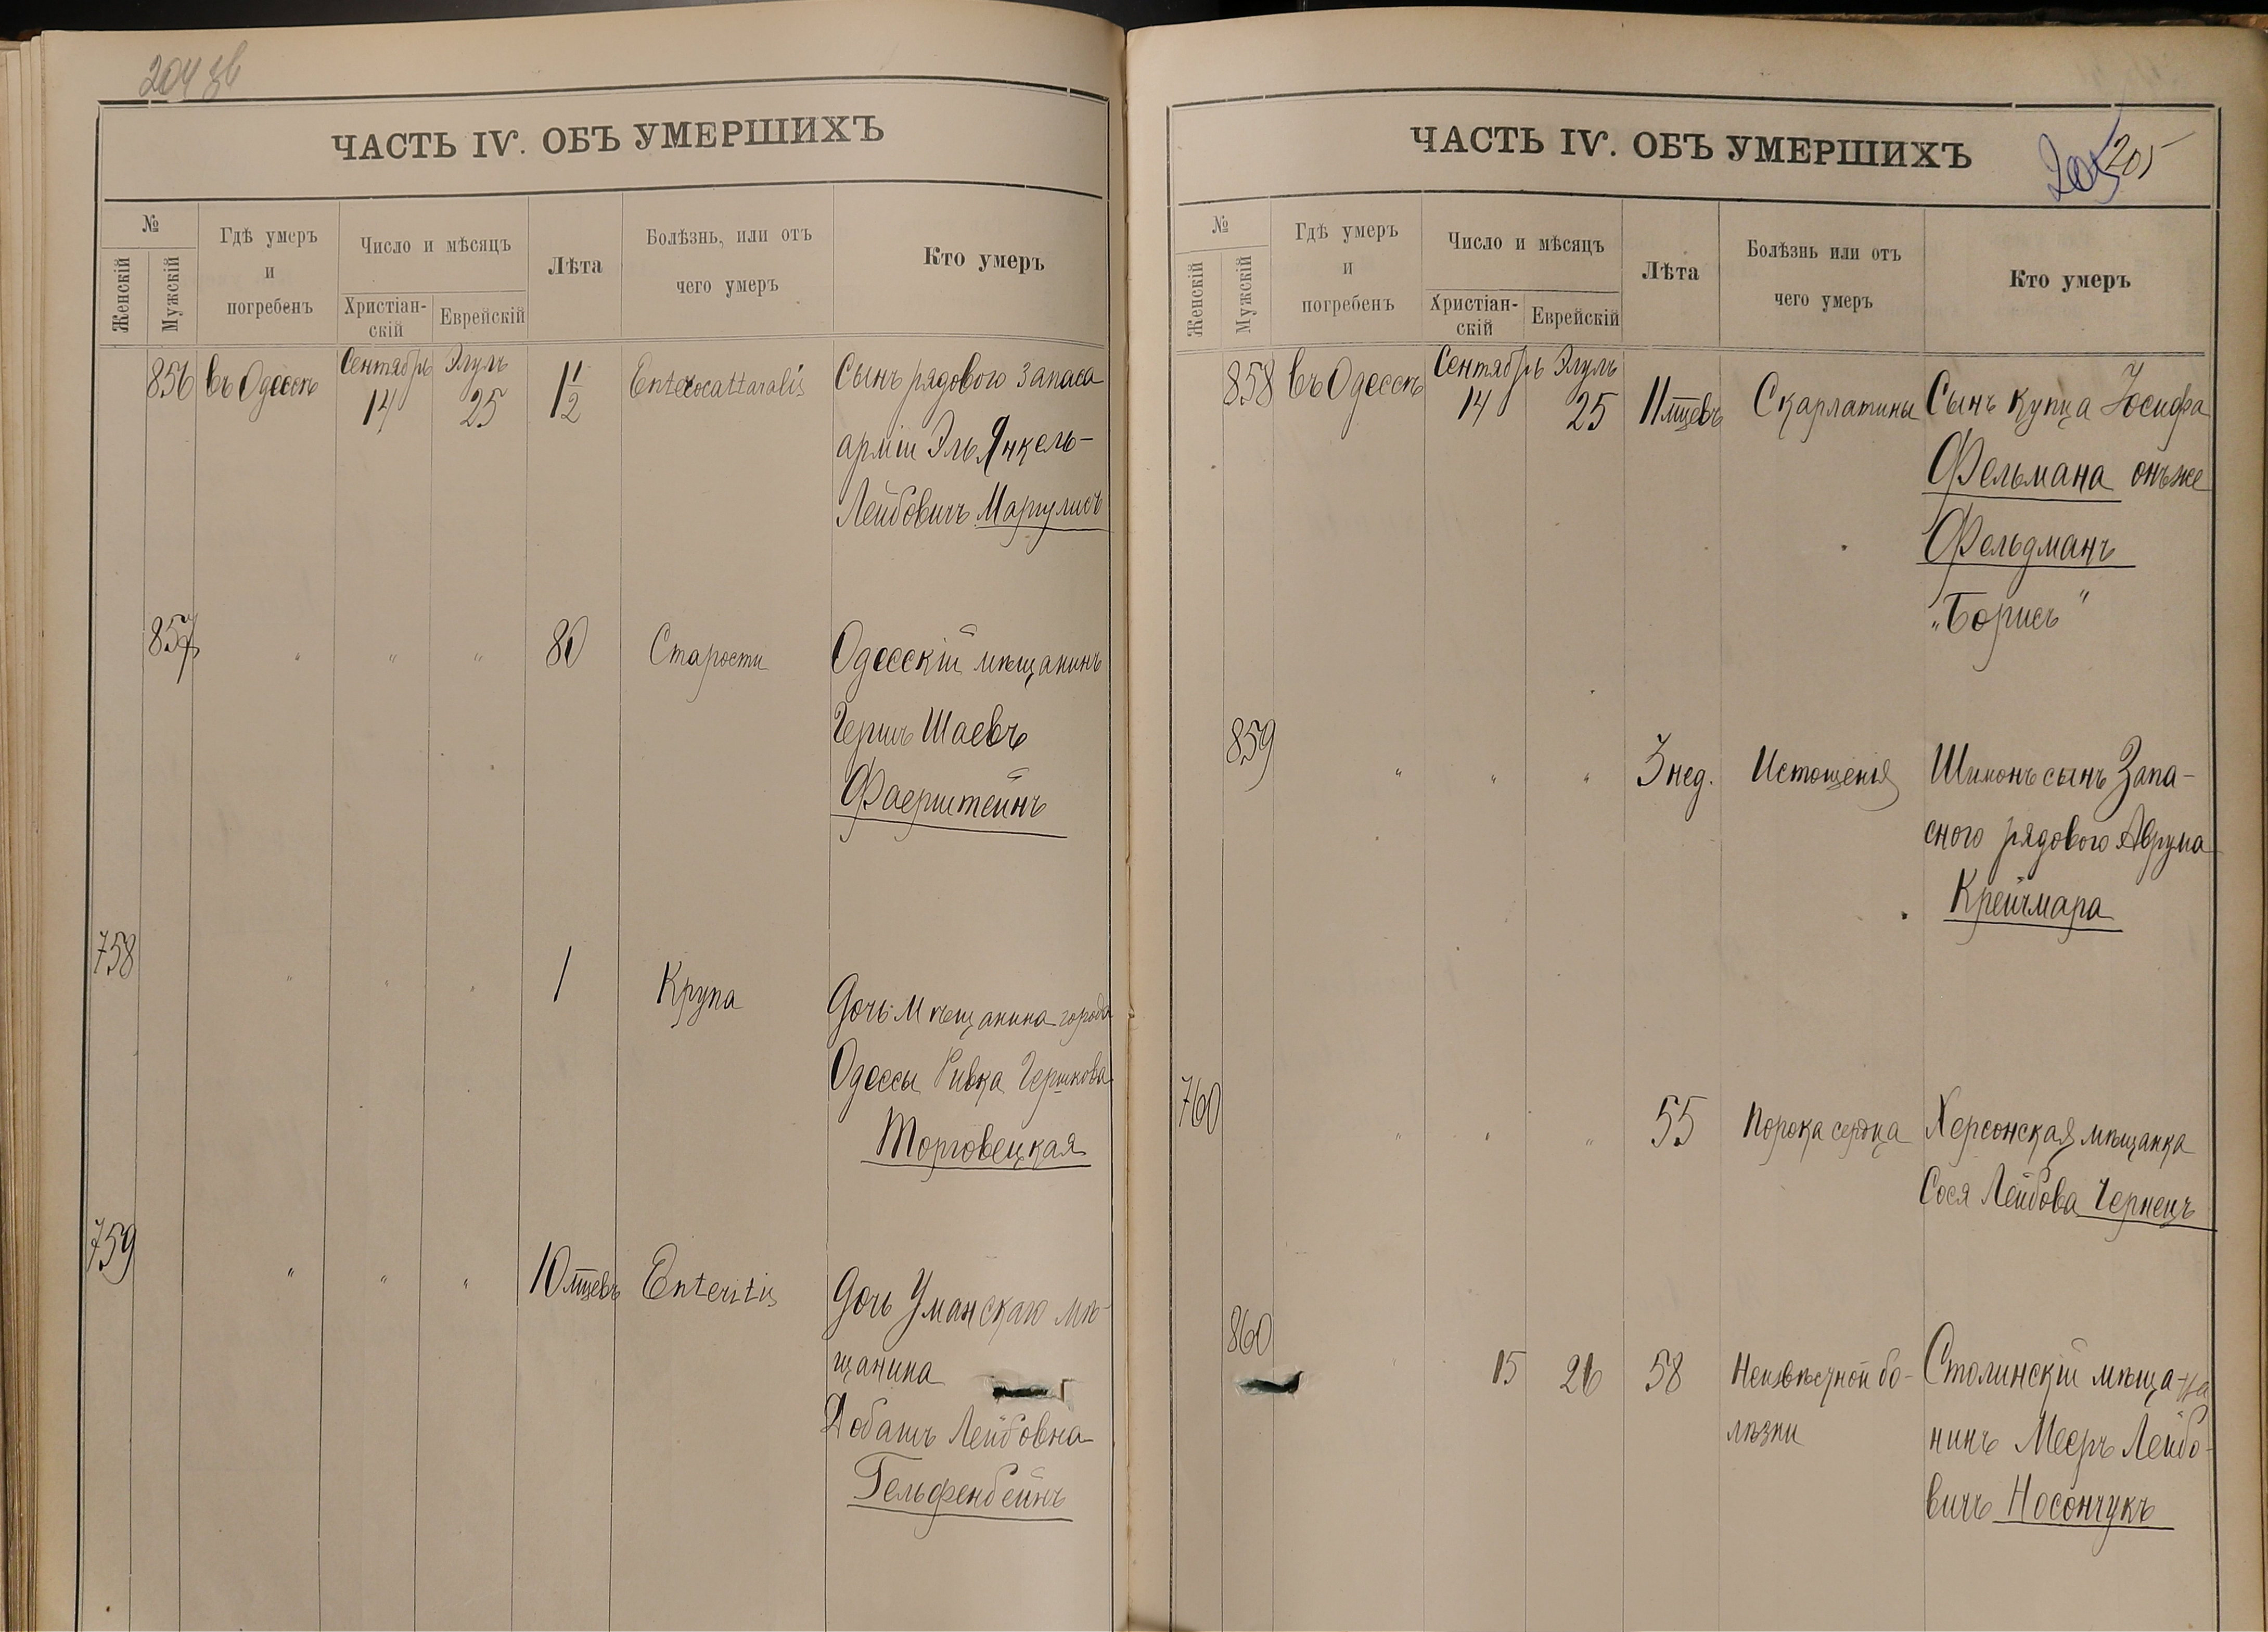 204 зв
ЧАСТЬ IV. ОБЪ УМЕРШИХЪ
№
Женскій
Мужскій
Гдѣ умеръ
и
погребенъ
Число и мѣсяцъ
Христіан-
скій
Еврейскій
Лѣта
Болѣзнь, или отъ
чего умеръ
Кто умеръ
856 въ Одессѣ Сентябрь 14 Элулъ 25 1 1/2 Enterocattaralis Сынъ рядового запаса
арміи Эль Янкель-
Лейбовичъ Маргулисъ
857 " " " 80 Старости Одесскій мѣщанинъ
Гершъ Шаевъ
Фаерштейнъ
758 " " " 1 Крупа Дочь мѣщанина города
Одессы Ривка Гершкова
Торговецкая
759 " " " 10 мцевъ Enteritis Дочь Уманскаго мѣ-
щанина
Добашъ Лейбовна
Гельфенбейнъ
ЧАСТЬ IV. ОБЪ УМЕРШИХЪ
205 205
№
Женскій
Мужскій
Гдѣ умеръ
и
погребенъ
Число и мѣсяцъ
Христіан-
скій
Еврейскій
Лѣта
Болѣзнь или отъ
чего умеръ
Кто умеръ
858 въ Одессѣ Сентябрь 14 Элулъ 25 11 мцевъ Скарлатины Сынъ купца Іосифа
Фельмана онъ же
Фельдманъ
„Борисъ"
859 " " " 3 нед. Истощенія Шимонъ сынъ Запа-
сного рядового Аврума
Крейчмара
760 " " " 55 Порока сердца Херсонская мѣщанка
Сося Лейбова Чернецъ
860 " 15 26 58 Неизвѣстной бо- Столинскій мѣща-
лѣзни нинъ Мееръ Лейбо-
вичъ Носончукъ